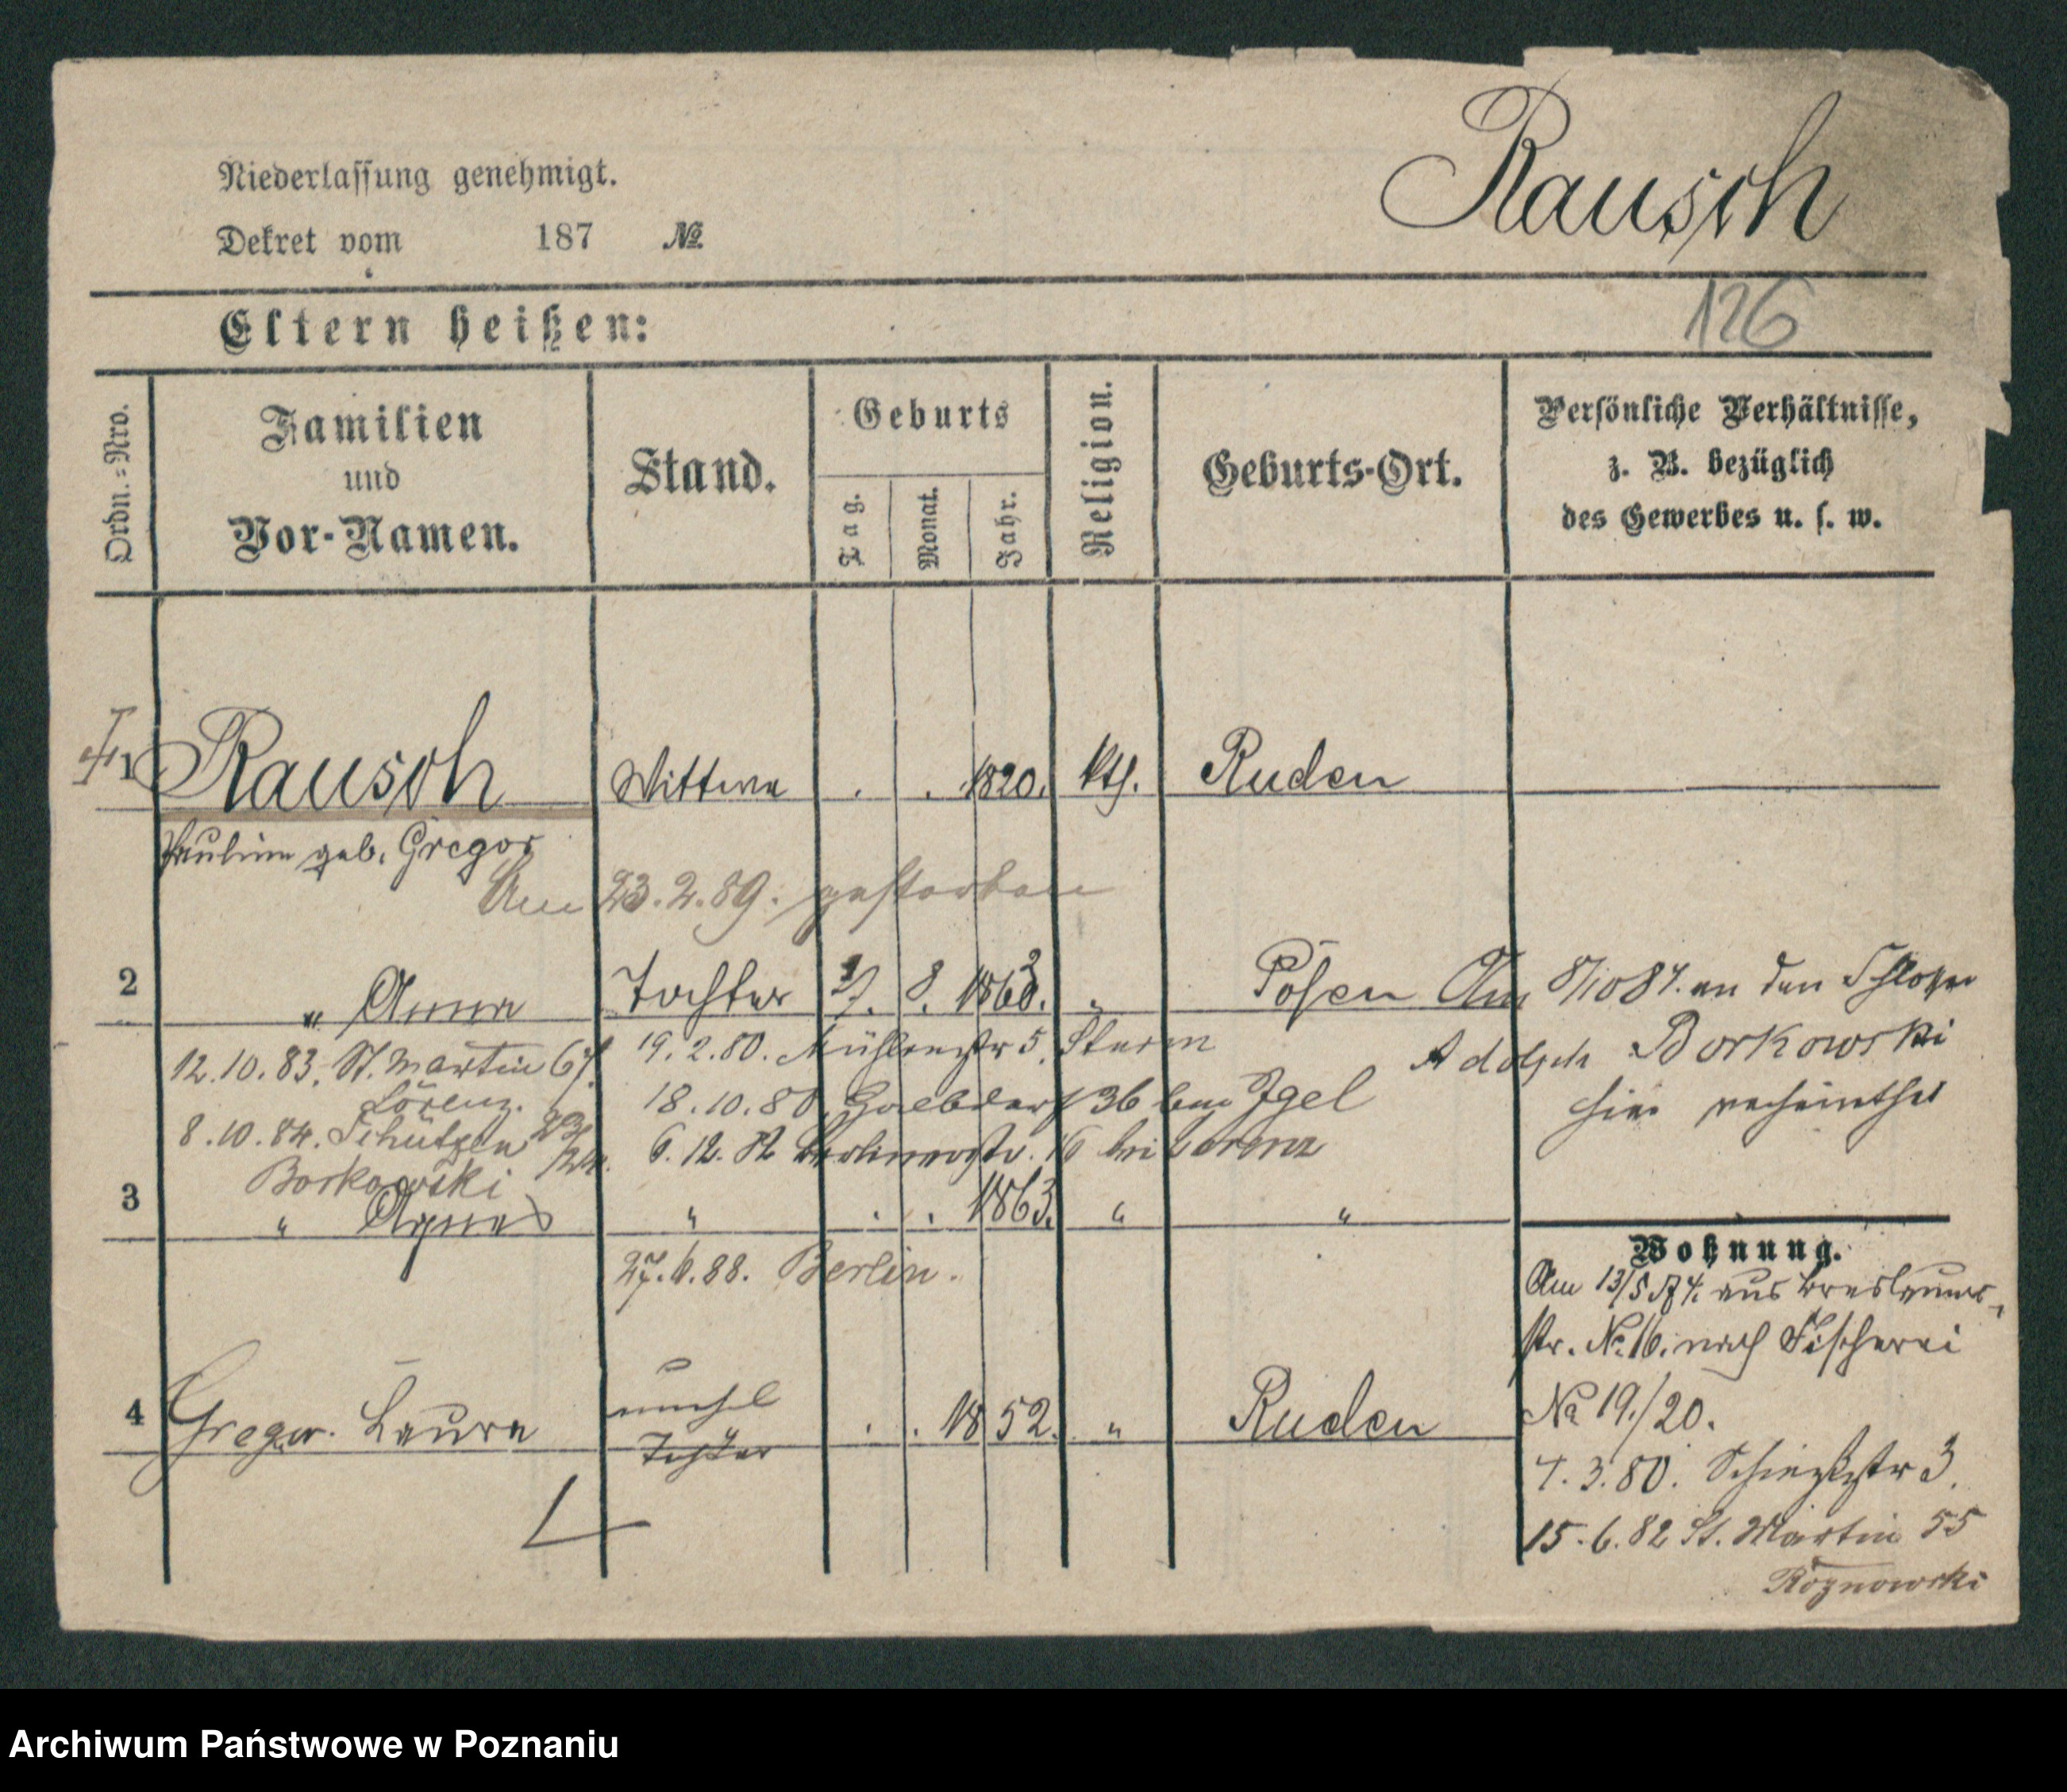 Rausch
Niederlassung genehmigt.
Dekret vom 187 №
126
Eltern heißen:
Ordn.-Nro.
Familien
und
Vor-Namen.
Stand.
Geburts
Tag.
Monat.
Jahr.
Religion.
Geburts-Ort.
Persönliche Verhältnisse,
z. B. bezüglich
des Gewerbes u. s. w.
1 Rausch Wittwe . . 1820. kth. Ruden
Pauline geb. Gregor
Am 23.2.89. gestorben
2 " Anna Tochter 8. " Posen
Am 8/10 84. an den Schlosser
Adolph Borkowski
hier verheirathet
12.10.83. St. Martin 67.
Lorenz.
8.10.84. Schützen
Borkowski
19.2.80. Mühlenstr 5. Sturm
18.10.80 36 bei Igel
6.12.82 Berlinerstr. 16 bei Lorenz
3 " Agnes " . . 1863. " "
27.6.88. Berlin.
4 Gregor. Laura unehel Tochter . . 1852. " Ruden
Wohnung.
Am 13/5 74. aus Breslauer-
str. No. 16. nach Fischerei
No 19./20.
4.3.80. 3.
15.6.82 St. Martin 55
Roznowski
Archiwum Państwowe w Poznaniu